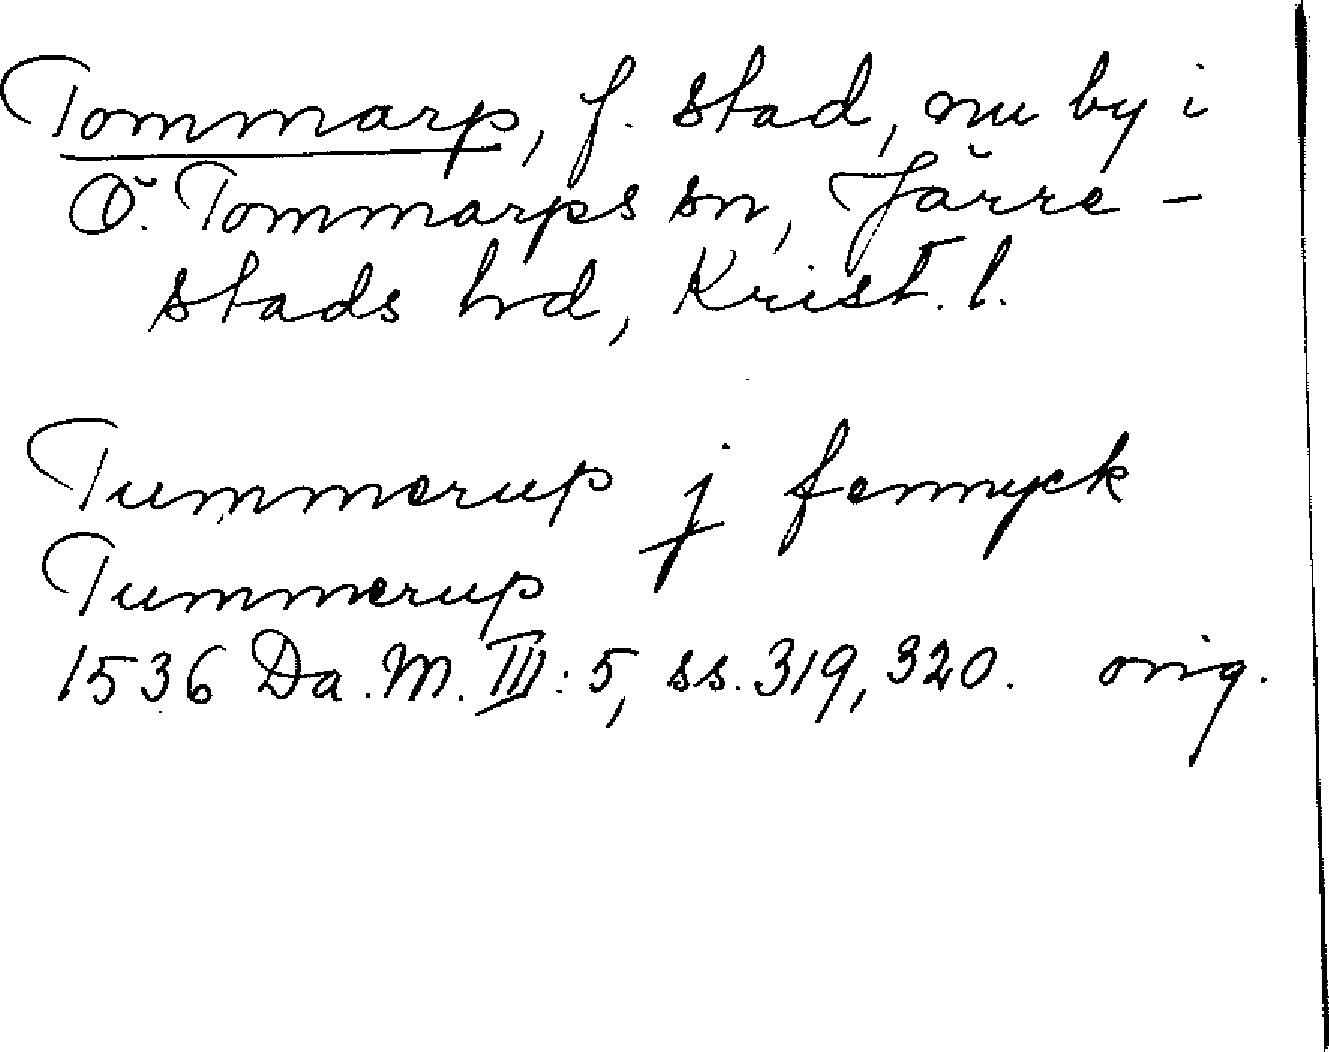 Tommarp, f. stad, nu by i
Ö. Tommarps sn, Järre-
stads hd, Krist. l.
Tummerup j femnyck
Tummerup
1536 Da. M. III: 5, ss. 319, 320. orig.